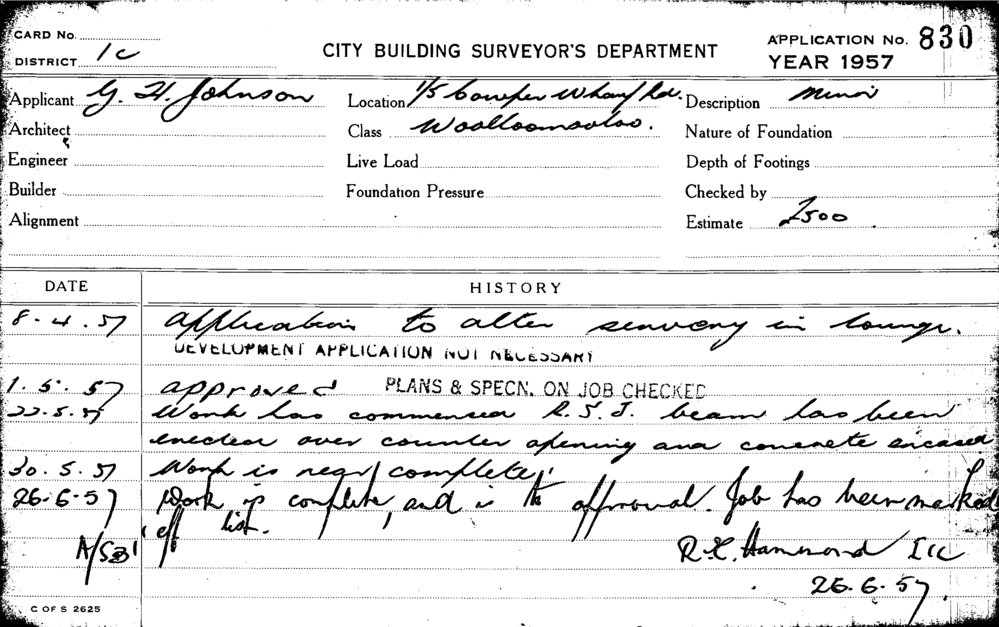 CARD No.
DISTRICT 1c
CITY BUILDING SURVEYOR'S DEPARTMENT
APPLICATION No. 830
YEAR 1957
Applicant G. H. Johnson
Location 1/5 Cowper Wharf Rd.
Description Minor
Architect
Class Woolloomooloo.
Nature of Foundation
Engineer
Live Load
Depth of Footings
Builder
Foundation Pressure
Checked by
Alignment
Estimate £500
DATE HISTORY
8.4.57 Application to alter servery in lounge.
DEVELOPMENT APPLICATION NOT NECESSARY
1.5.57 approved PLANS & SPECN. ON JOB CHECKED
22.5.57 Work has commenced R.S.J. beam has been
erected over counter opening and concrete encased
30.5.57 Work is near complete.
26-6-57 Work is complete, and is to approval. Job has been marked
off list.
A/SB
R. Hammond
26.6.57.
C OF S 2625